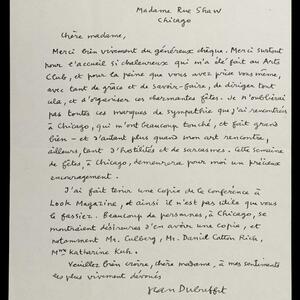 Madame Rue Shaw
Chicago
Chère madame,
Merci bien vivement du généreux chèque. Merci surtout
pour l'accueil si chaleureux qui m'a été fait au Arts
Club, et pour la peine que vous avez prise vous même,
avec tant de grâce et de savoir-faire, de diriger tout
cela, et d'organiser ces charmantes fêtes. Je n'oublierai
pas toutes ces marques de sympathie que j'ai rencontrées
à Chicago, qui m'ont beaucoup touché, et fait grand
bien - et d'autant plus quand mon art rencontre,
ailleurs, tant d'hostilités et de sarcasmes. Cette semaine
de fêtes, à Chicago, demeurera pour moi un précieux
encouragement.
J'ai fait tenir une copie de la conférence à
Look Magazine, et ainsi il n'est pas utile que vous
le fassiez. Beaucoup de personnes, à Chicago, se
montraient désireuses d'en avoir une copie, et
notamment Mr. Culberg, Mr. Daniel Catton Rich,
Mme Katharine Kuh.
Veuillez bien croire, chère madame, à mes sentiments
les plus vivement dévoués
Jean Dubuffet